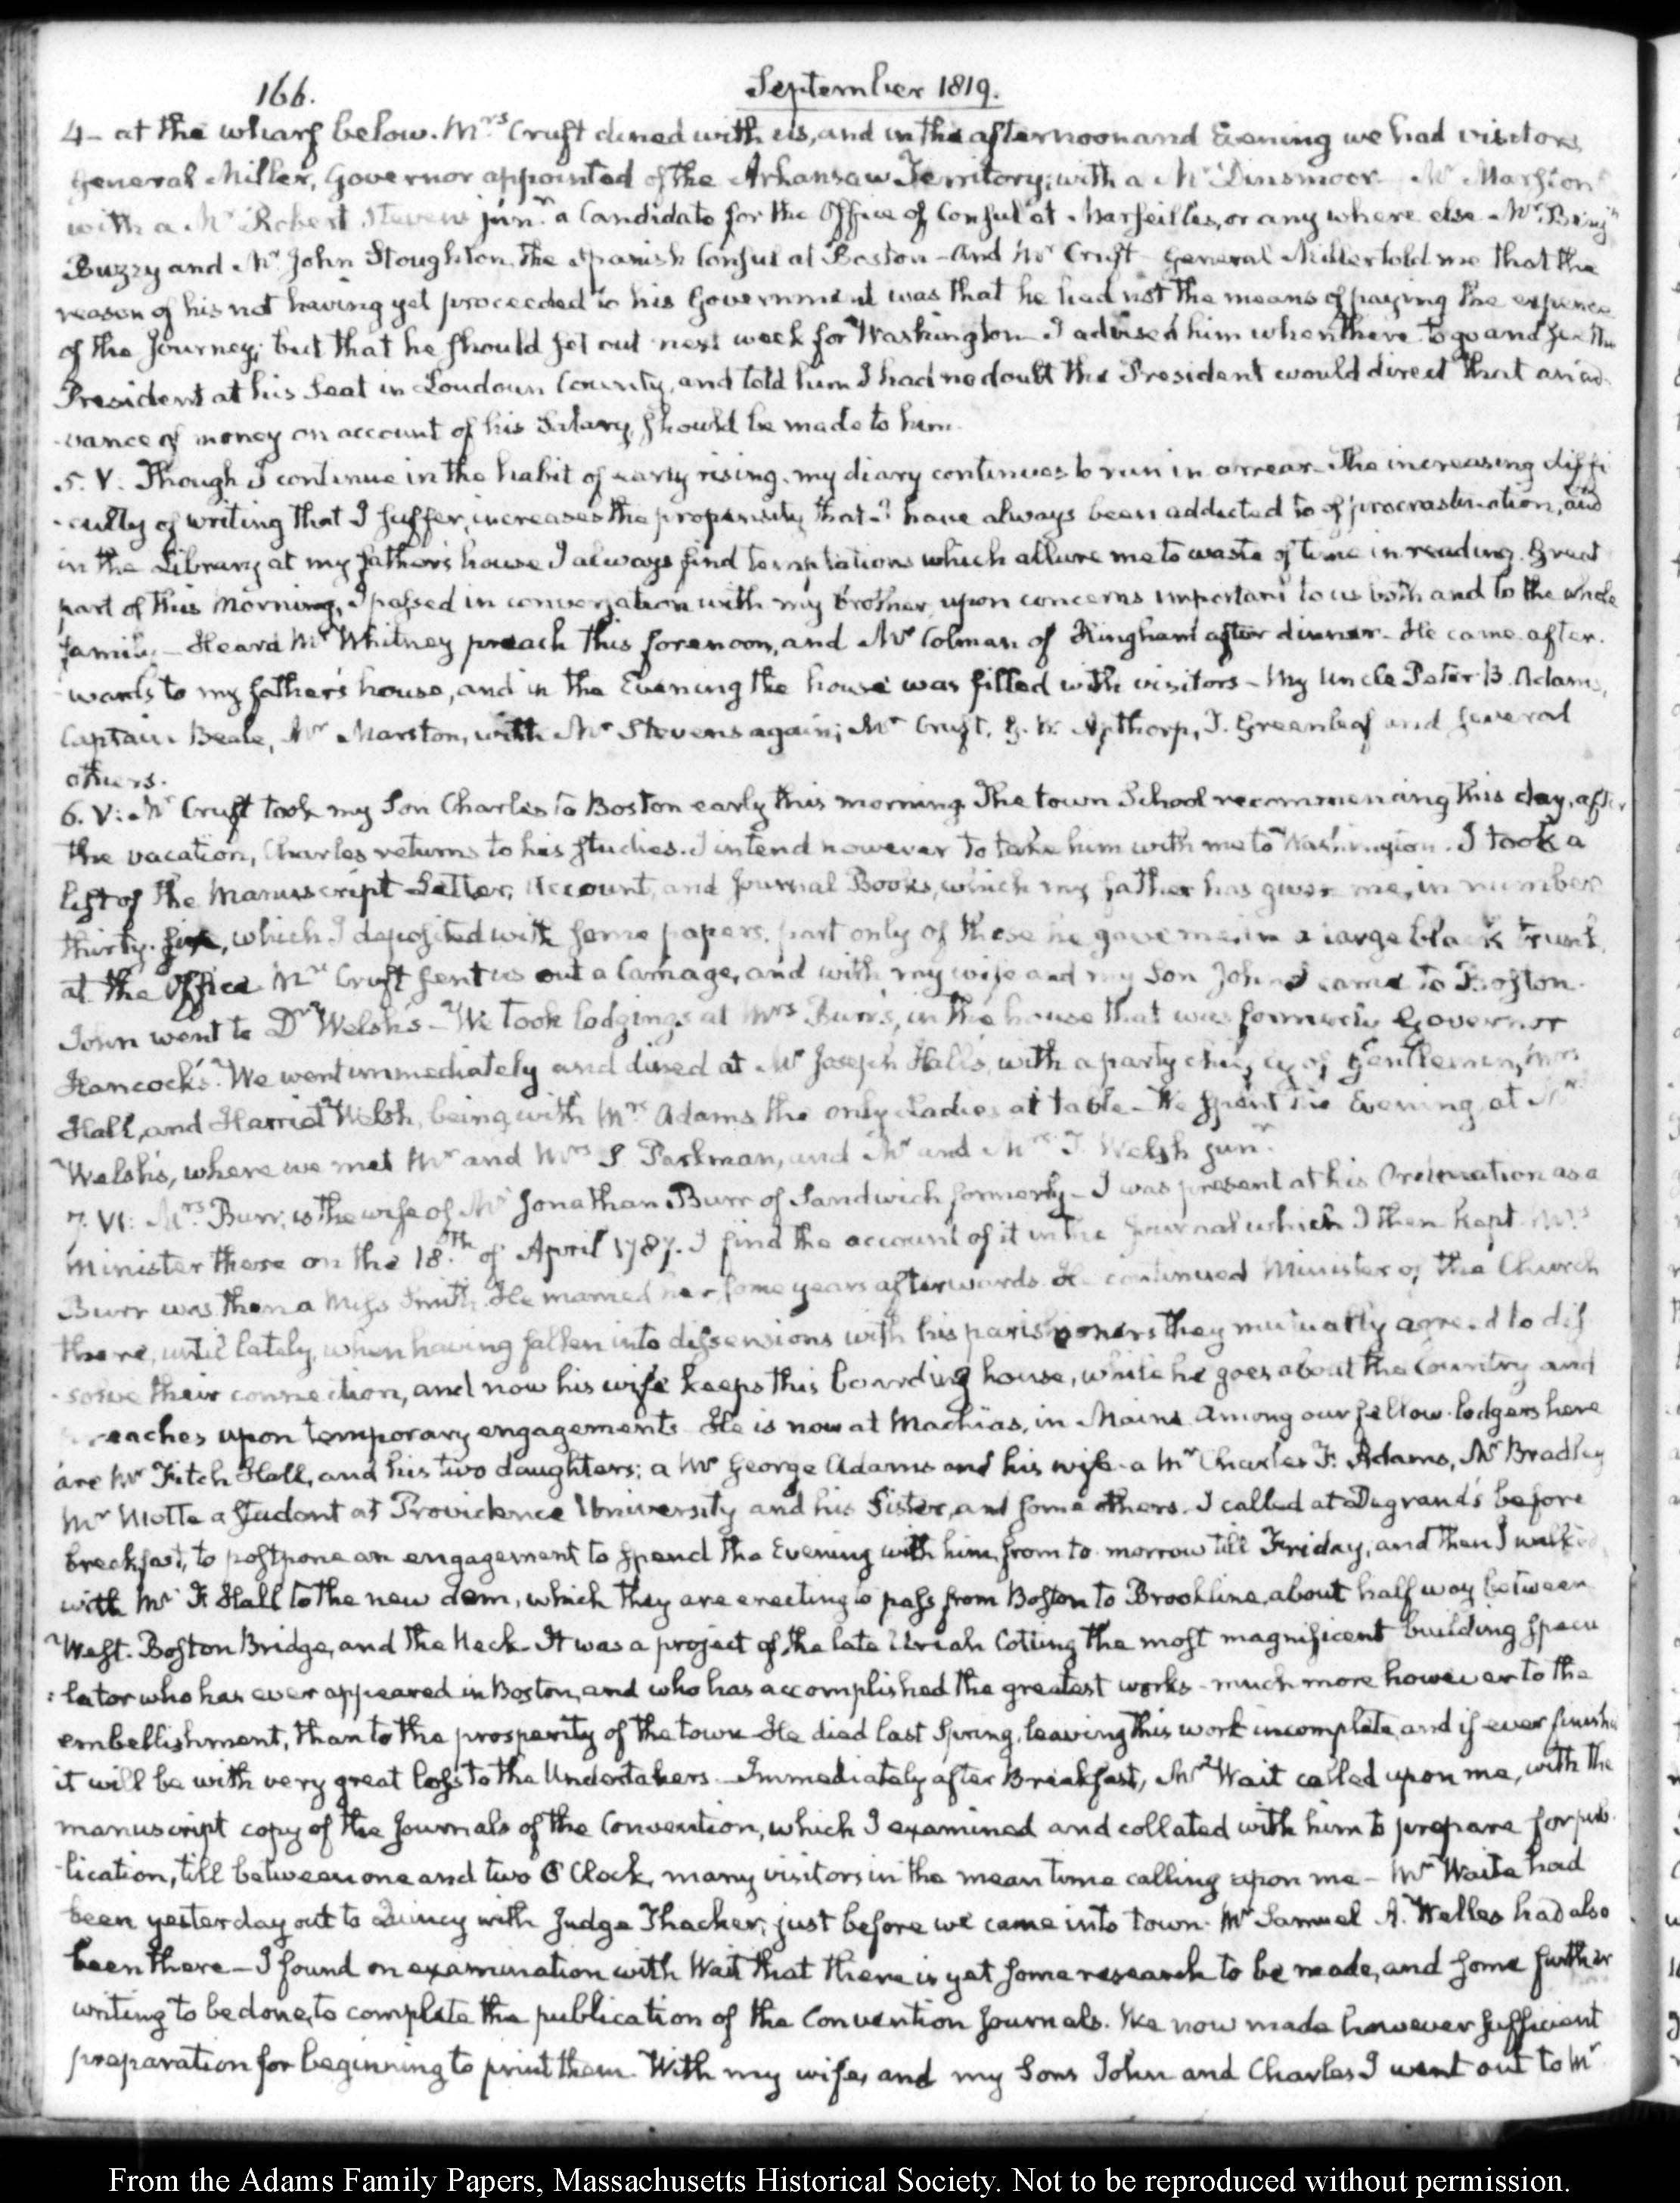 166.
September 1819.
4— at the wharf below. Mrs Cruft dined with us, and in the afternoon and Evening we had visitors
General Miller, Governor appointed of the Arkansaw Territory; with a Mr Dinsmoor. Mr Marston
with a Mr Robert Stevens junr. a Candidate for the Office of Consul at Marseilles, or any where else Mr Benjn
Buzzy and Mr John Stoughton, the Spanish Consul at Boston – And Mr Cruft – General Miller told me that the
reason of his not having yet proceeded to his Government was that he had not the means of paying the expence
of the Journey; but that he should set out next week for Washington. I advised him when there to go and see the
President at his Seat in Loudoun County, and told him I had no doubt the President would direct that an ad-
-vance of money on account of his Salary, should be made to him.
5. V. Though I continue in the habit of early rising, my diary continues to run in arrear – The increasing diffi
-culty of writing that I suffer, increases the propensity that I have always been addicted to of procrastination, and
in the Library at my father's house I always find temptations which allure me to waste of time in reading. Great
part of this Morning, I passed in conversation with my brother upon concerns important to us both and to the whole
family – Heard Mr Whitney preach this forenoon, and Mr Colman of Hingham after dinner – He came after-
-wards to my father's house, and in the Evening the house was filled with visitors – My Uncle Peter B. Adams,
Captain Beale, Mr Marston, with Mr Stevens again; Mr Cruft, G. W. Apthorp, J. Greenleaf and several
others.
6. V: Mr Cruft took my Son Charles to Boston early this morning. The town School recommencing this day, after
the vacation, Charles returns to his studies. I intend however to take him with me to Washington. I took a
list of the Manuscript Letter, Account, and Journal Books, which my father has given me, in number
thirty-five, which I deposited with some papers, part only of those he gave me, in a large black trunk,
at the Office Mr Cruft sent us out a Carriage, and with my wife and my Son John I came to Boston.
John went to Dr Welsh's – We took lodgings at Mrs Burr's, in the house that was formerly Governor
Hancock's. We went immediately and dined at Mr Joseph Hall's, with a party chiefly of Gentlemen, Mrs
Hall, and Harriet Welsh, being with Mrs Adams the only Ladies at table – We spent the Evening at Dr
Welsh's, where we met Mr and Mrs S Parkman, and Mr and Mrs T. Welsh junr.
7. VI: Mrs. Burr, is the wife of Mr Jonathan Burr of Sandwich formerly – I was present at his Ordination as a
Minister there on the 18th. of April 1787. I find the account of it in the Journal which I then kept. Mrs
Burr was then a Miss Smith. He married her some years afterwards. He continued Minister of the Church
there, until lately, when having fallen into dissensions with his parishioners they mutually agreed to dis
-solve their connection, and now his wife keeps this boarding house, while he goes about the Country and
preaches upon temporary engagements – He is now at Machias, in Maine. Among our fellow-lodgers here
are Mr Fitch Hall, and his two daughters; a Mr George Adams and his wife – a Mr Charles F. Adams, Mr Bradley
Mr Motte a student at Providence University and his Sister, and some others. I called at Degrand's before
breakfast, to postpone an engagement to spend the Evening with him, from to-morrow till Friday, and then I walked
with Mr F. Hall to the new dam, which they are erecting to pass from Boston to Brookline, about half way between
West-Boston Bridge, and the Neck – It was a project of the late Uriah Cotting the most magnificent building specu
-lator who has ever appeared in Boston, and who has accomplished the greatest works – much more however to the
embellishment, than to the prosperity of the town – He died last Spring, leaving this work incomplete, and if ever finished
it will be with very great loss to the Undertakers – Immediately after Breakfast, Mr Wait called upon me, with the
manuscript copy of the Journals of the Convention, which I examined and collated with him to prepare for pub-
-lication, till between one and two O'Clock, many visitors in the mean time calling upon me – Mr Waite had
been yesterday out to Quincy with Judge Thacher, just before we came into town. Mr Samuel A. Welles had also
been there – I found on examination with Wait that there is yet some research to be made, and some further
writing to be done, to complete the publication of the Convention Journals. We now made however sufficient
preparation for beginning to print them. With my wife, and my Sons John and Charles I went out to Mr
From the Adams Family Papers, Massachusetts Historical Society. Not to be reproduced without permission.